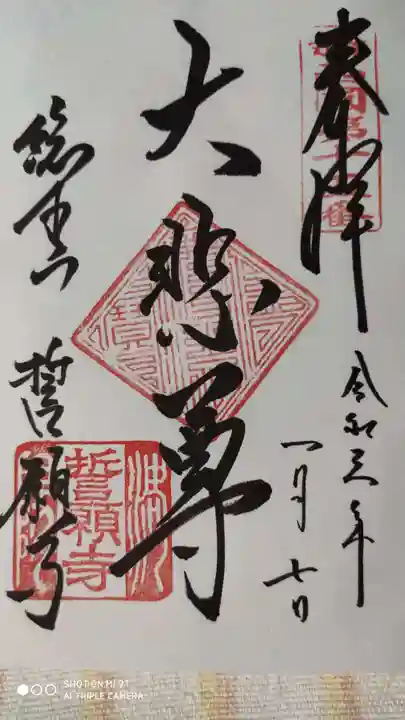 奉拝
令和三年
一月七日
大悲尊
総本山
誓願寺
誓願寺
SHOT ON MI 9T
AI TRIPLE CAMERA